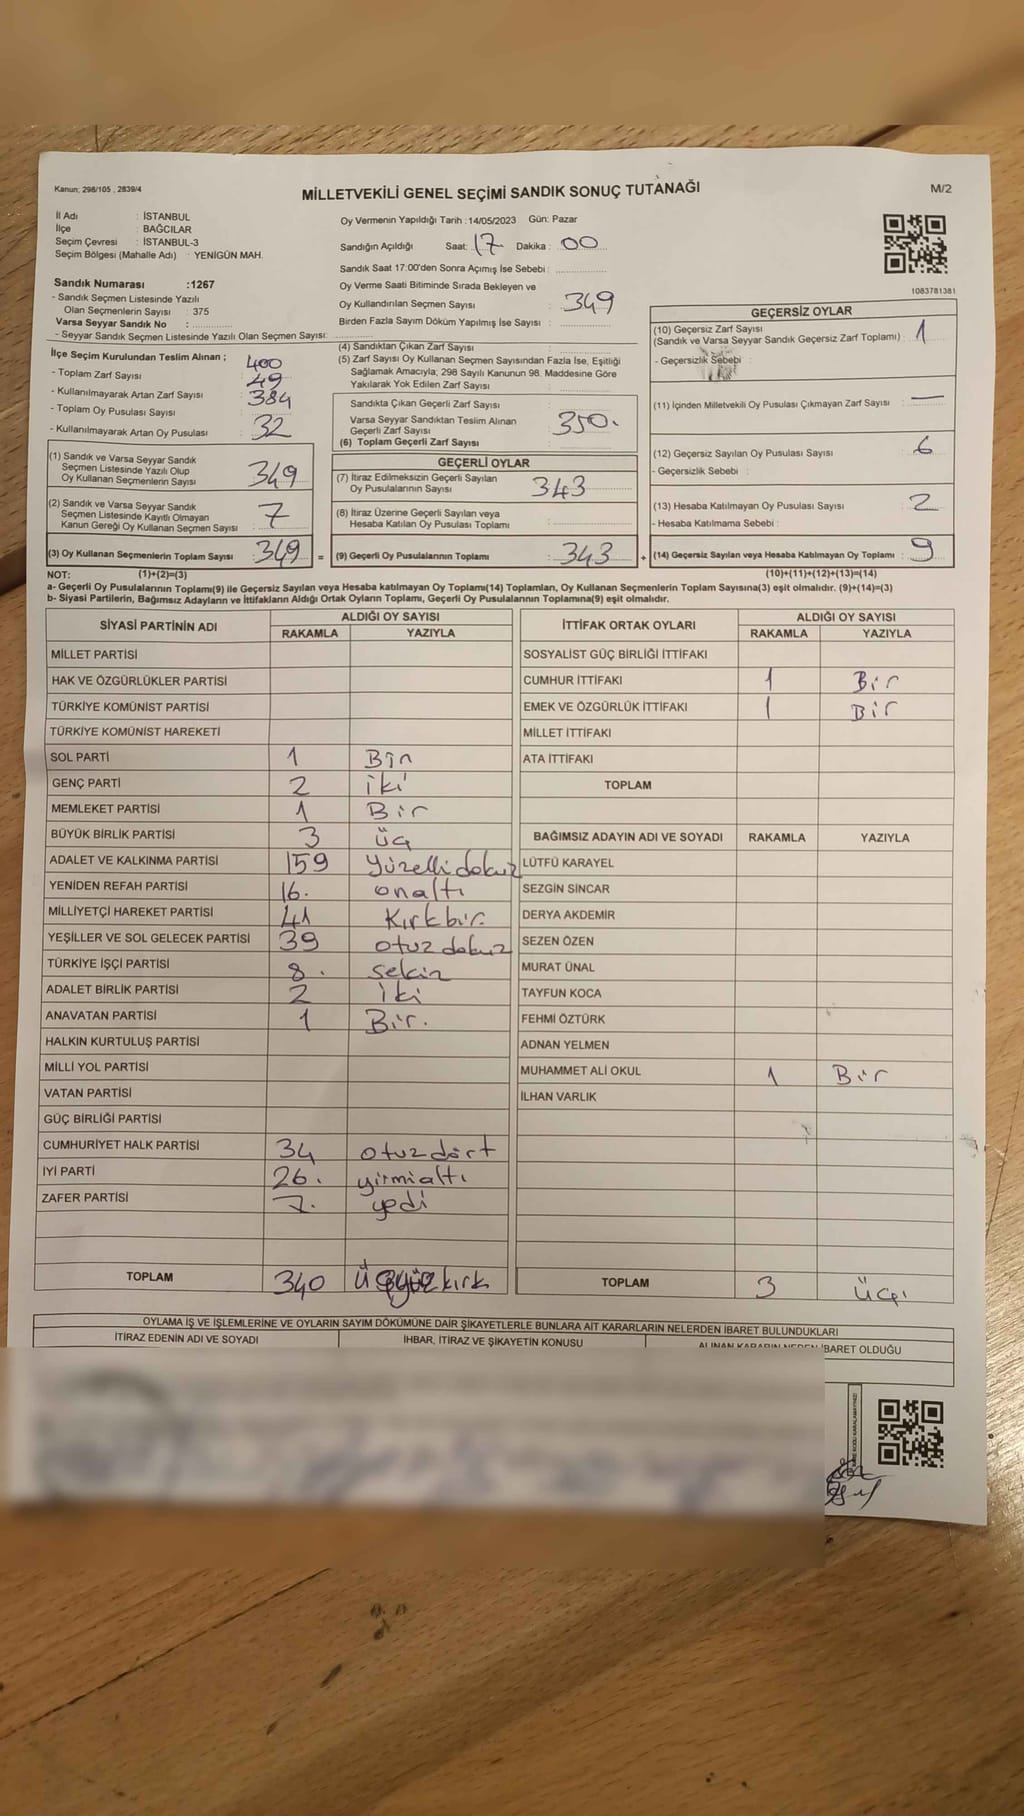 Kanun; 298/105 , 2839/4
MİLLETVEKİLİ GENEL SEÇİMİ SANDIK SONUÇ TUTANAĞI
M/2
İl Adı : İSTANBUL
İlçe : BAĞCILAR
Seçim Çevresi : İSTANBUL-3
Seçim Bölgesi (Mahalle Adı) : YENİGÜN MAH.
Sandık Numarası :1267
- Sandık Seçmen Listesinde Yazılı
Olan Seçmenlerin Sayısı : 375
Varsa Seyyar Sandık No :
- Seyyar Sandık Seçmen Listesinde Yazılı Olan Seçmen Sayısı:
Oy Vermenin Yapıldığı Tarih :14/05/2023 Gün: Pazar
Sandığın Açıldığı Saat: 17 Dakika : 00
Sandık Saat 17:00'den Sonra Açımış İse Sebebi :
Oy Verme Saati Bitiminde Sırada Bekleyen ve
Oy Kullandırılan Seçmen Sayısı : 349
Birden Fazla Sayım Döküm Yapılmış İse Sayısı :
1083781381
İlçe Seçim Kurulundan Teslim Alınan ;
- Toplam Zarf Sayısı : 400
- Kullanılmayarak Artan Zarf Sayısı : 49
- Toplam Oy Pusulası Sayısı : 384
- Kullanılmayarak Artan Oy Pusulası : 32
(1) Sandık ve Varsa Seyyar Sandık
Seçmen Listesinde Yazılı Olup
Oy Kullanan Seçmenlerin Sayısı : 349
(2) Sandık ve Varsa Seyyar Sandık
Seçmen Listesinde Kayıtlı Olmayan
Kanun Gereği Oy Kullanan Seçmen Sayısı : 7
(3) Oy Kullanan Seçmenlerin Toplam Sayısı : 349 =
(4) Sandıktan Çıkan Zarf Sayısı :
(5) Zarf Sayısı Oy Kullanan Seçmen Sayısından Fazla İse, Eşitliği
Sağlamak Amacıyla; 298 Sayılı Kanunun 98. Maddesine Göre
Yakılarak Yok Edilen Zarf Sayısı :
Sandıkta Çıkan Geçerli Zarf Sayısı :
Varsa Seyyar Sandıktan Teslim Alınan
Geçerli Zarf Sayısı : 350.
(6) Toplam Geçerli Zarf Sayısı :
GEÇERLİ OYLAR
(7) İtiraz Edilmeksizin Geçerli Sayılan
Oy Pusulalarının Sayısı : 343
(8) İtiraz Üzerine Geçerli Sayılan veya
Hesaba Katılan Oy Pusulası Toplamı :
(9) Geçerli Oy Pusulalarının Toplamı : 343 +
GEÇERSİZ OYLAR
(10) Geçersiz Zarf Sayısı
(Sandık ve Varsa Seyyar Sandık Geçersiz Zarf Toplamı) : 1
- Geçersizlik Sebebi :
(11) İçinden Milletvekili Oy Pusulası Çıkmayan Zarf Sayısı : —
(12) Geçersiz Sayılan Oy Pusulası Sayısı : 6
- Geçersizlik Sebebi :
(13) Hesaba Katılmayan Oy Pusulası Sayısı : 2
- Hesaba Katılmama Sebebi :
(14) Geçersiz Sayılan veya Hesaba Katılmayan Oy Toplamı : 9
NOT: (1)+(2)=(3)
(10)+(11)+(12)+(13)=(14)
a- Geçerli Oy Pusulalarının Toplamı(9) ile Geçersiz Sayılan veya Hesaba katılmayan Oy Toplamı(14) Toplamları, Oy Kullanan Seçmenlerin Toplam Sayısına(3) eşit olmalıdır. (9)+(14)=(3)
b- Siyasi Partilerin, Bağımsız Adayların ve İttifakların Aldığı Ortak Oyların Toplamı, Geçerli Oy Pusulalarının Toplamına(9) eşit olmalıdır.
SİYASİ PARTİNİN ADI ALDIĞI OY SAYISI
RAKAMLA YAZIYLA
MİLLET PARTİSİ
HAK VE ÖZGÜRLÜKLER PARTİSİ
TÜRKİYE KOMÜNİST PARTİSİ
TÜRKİYE KOMÜNİST HAREKETİ
SOL PARTİ 1 Bir
GENÇ PARTİ 2 iki
MEMLEKET PARTİSİ 1 Bir
BÜYÜK BİRLİK PARTİSİ 3 üç
ADALET VE KALKINMA PARTİSİ 159 Yüzellidokuz
YENİDEN REFAH PARTİSİ 16. onaltı
MİLLİYETÇİ HAREKET PARTİSİ 41 Kırkbir.
YEŞİLLER VE SOL GELECEK PARTİSİ 39 otuzdokuz
TÜRKİYE İŞÇİ PARTİSİ 8. sekiz
ADALET BİRLİK PARTİSİ 2 iki
ANAVATAN PARTİSİ 1 Bir.
HALKIN KURTULUŞ PARTİSİ
MİLLİ YOL PARTİSİ
VATAN PARTİSİ
GÜÇ BİRLİĞİ PARTİSİ
CUMHURİYET HALK PARTİSİ 34 otuzdört
İYİ PARTİ 26. yirmialtı
ZAFER PARTİSİ 7. yedi
TOPLAM 340 Üçyüzkırk
İTTİFAK ORTAK OYLARI ALDIĞI OY SAYISI
RAKAMLA YAZIYLA
SOSYALİST GÜÇ BİRLİĞİ İTTİFAKI
CUMHUR İTTİFAKI 1 Bir
EMEK VE ÖZGÜRLÜK İTTİFAKI 1 Bir
MİLLET İTTİFAKI
ATA İTTİFAKI
TOPLAM
BAĞIMSIZ ADAYIN ADI VE SOYADI RAKAMLA YAZIYLA
LÜTFÜ KARAYEL
SEZGİN SİNCAR
DERYA AKDEMİR
SEZEN ÖZEN
MURAT ÜNAL
TAYFUN KOCA
FEHMİ ÖZTÜRK
ADNAN YELMEN
MUHAMMET ALİ OKUL 1 Bir
İLHAN VARLIK
TOPLAM 3 Üç
OYLAMA İŞ VE İŞLEMLERİNE VE OYLARIN SAYIM DÖKÜMÜNE DAİR ŞİKAYETLERLE BUNLARA AİT KARARLARIN NELERDEN İBARET BULUNDUKLARI
İTİRAZ EDENİN ADI VE SOYADI İHBAR, İTİRAZ VE ŞİKAYETİN KONUSU ALINAN KARARIN NEDEN İBARET OLDUĞU